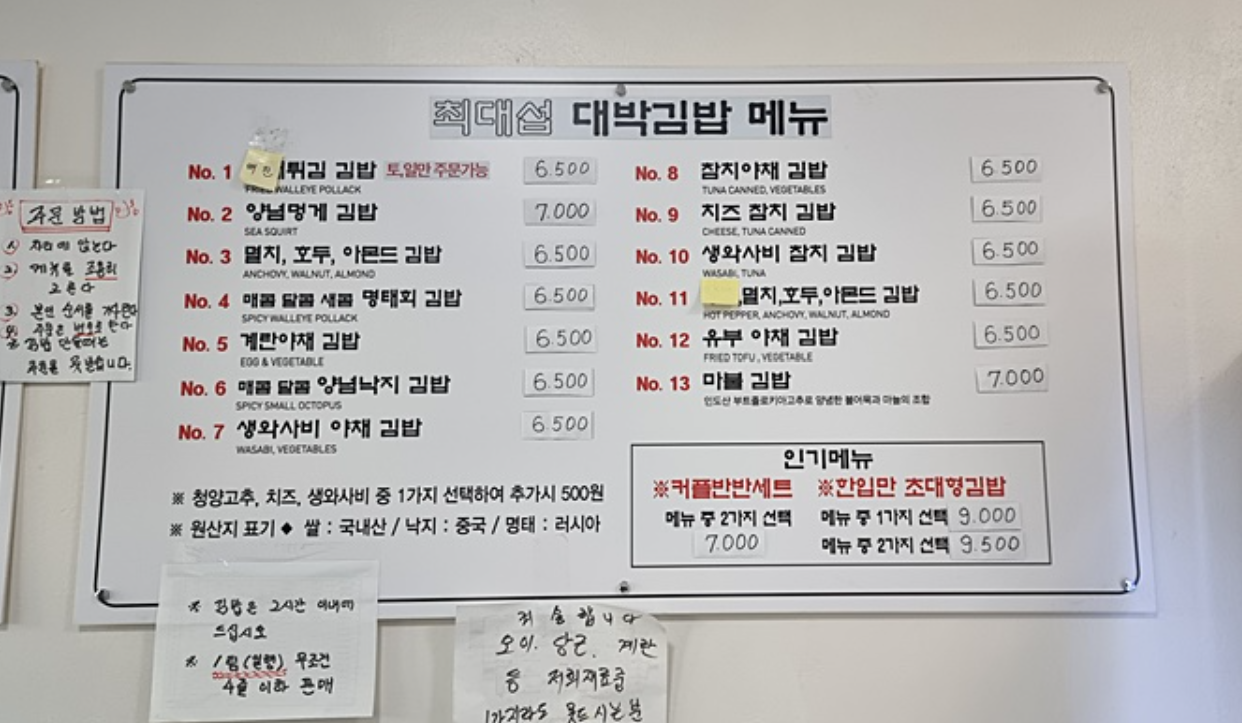 최대섭 대박김밥 메뉴
No. 1 튀김 김밥 토,일만 주문가능 6.500
FRIED WALLEYE POLLACK
No. 2 양념멍게 김밥 7.000
SEA SQUIRT
No. 3 멸치, 호두, 아몬드 김밥 6.500
ANCHOVY, WALNUT, ALMOND
No. 4 매콤 달콤 새콤 명태회 김밥 6.500
SPICY WALLEYE POLLACK
No. 5 계란야채 김밥 6.500
EGG & VEGETABLE
No. 6 매콤 달콤 양념낙지 김밥 6.500
SPICY SMALL OCTOPUS
No. 7 생와사비 야채 김밥 6.500
WASABI, VEGETABLES
※ 청양고추, 치즈, 생와사비 중 1가지 선택하여 추가시 500원
※ 원산지 표기 ◆ 쌀 : 국내산 / 낙지 : 중국 / 명태 : 러시아
No. 8 참치야채 김밥 6.500
TUNA CANNED, VEGETABLES
No. 9 치즈 참치 김밥 6.500
CHEESE, TUNA CANNED
No. 10 생와사비 참치 김밥 6.500
WASABI, TUNA
No. 11 ,멸치,호두,아몬드 김밥 6.500
HOT PEPPER, ANCHOVY, WALNUT, ALMOND
No. 12 유부 야채 김밥 6.500
FRIED TOFU , VEGETABLE
No. 13 마불 김밥 7.000
인도산 부트졸로키아고추로 양념한 불어묵과 마늘의 조합
인기메뉴
※커플반반세트 ※한입만 초대형김밥
메뉴 중 2가지 선택 메뉴 중 1가지 선택 9.000
7.000 메뉴 중 2가지 선택 9.500
주문 방법
① 자리에 앉는다
② 메뉴를 조용히
고른다
③ 본인 순서를 기다린다
④ 주문은 번호로 한다
※ 김밥 만들때는
주문을 못받습니다.
※ 김밥은 2시간 이내에
드십시오
※ 1팀(일행) 무조건
4줄 이하 판매
죄송합니다
오이. 당근. 계란
등 저희재료중
1가지라도 못드시는분